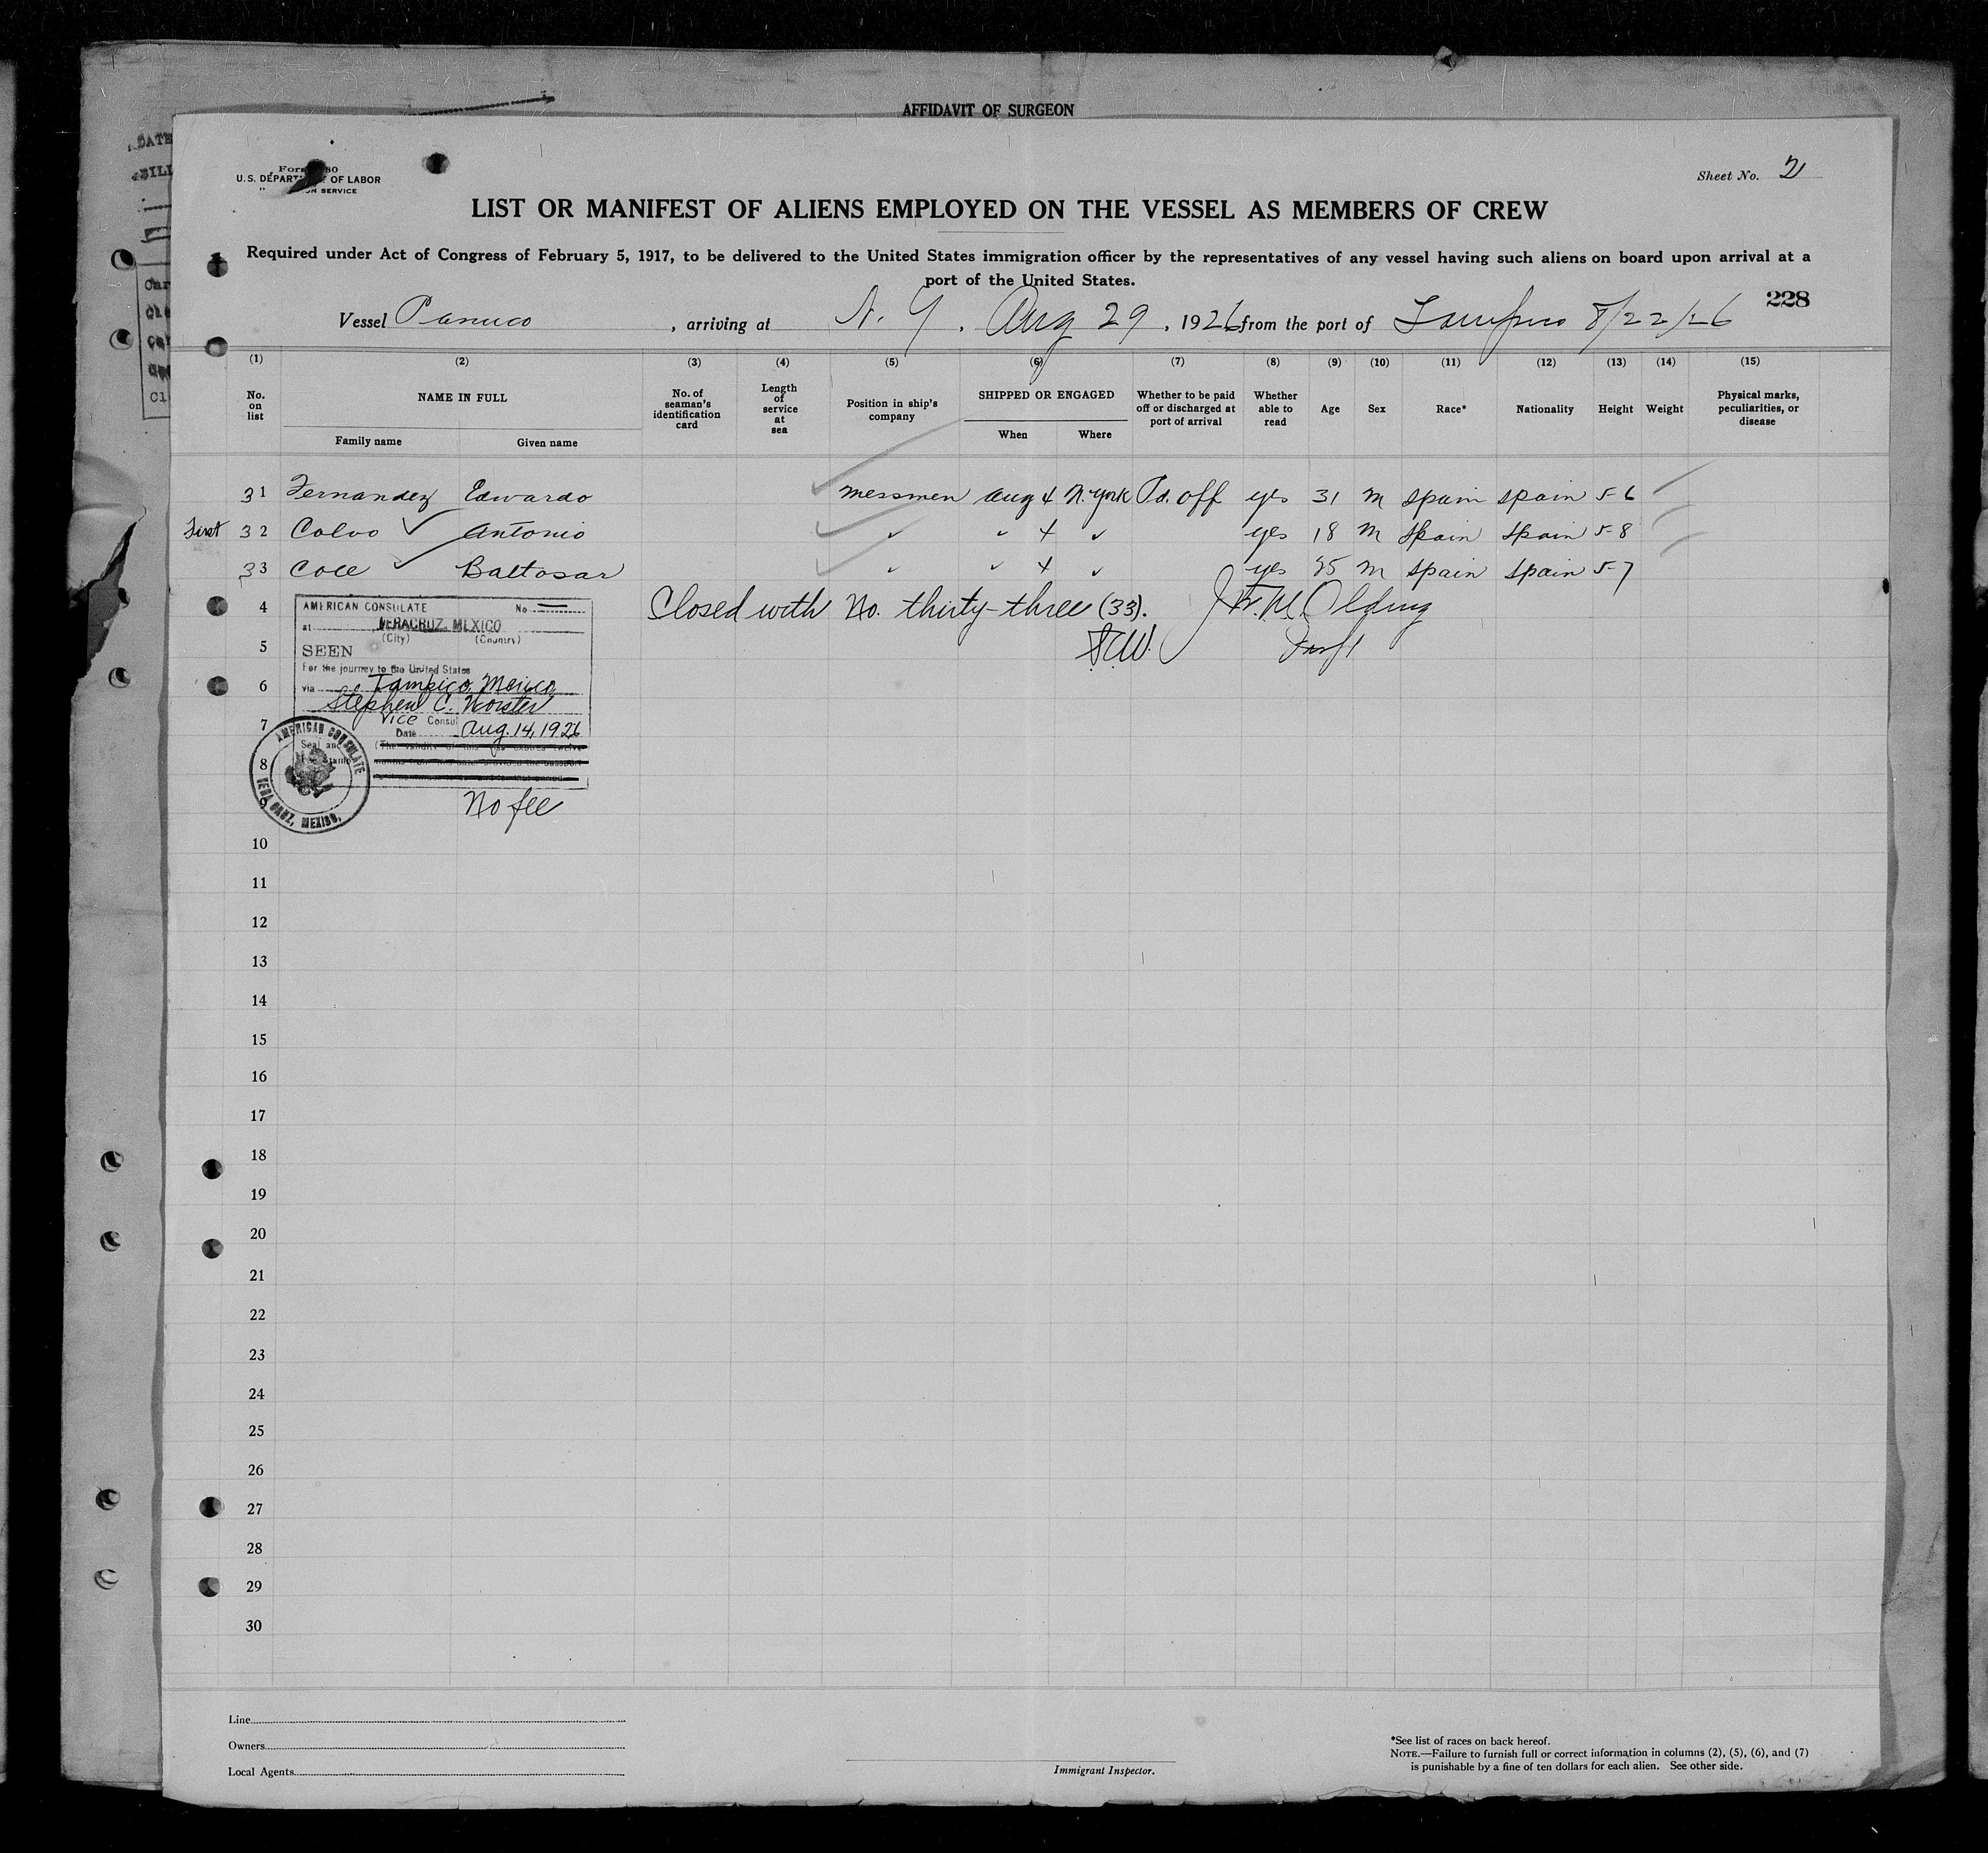 AFFIDAVIT OF SURGEON
U.S. DEPARTMENT OF LABOR
SERVICE
Sheet No. 2
LIST OR MANIFEST OF ALIENS EMPLOYED ON THE VESSEL AS MEMBERS OF CREW
Required under Act of Congress of February 5, 1917, to be delivered to the United States immigration officer by the representatives of any vessel having such aliens on board upon arrival at a
port of the United States.
228
Vessel Panuco, arriving at N. Y. Aug 29, 1926 from the port of Tampico 8/22/26
(1) (2) (3) (4) (5) (6) (7) (8) (9) (10) (11) (12) (13) (14) (15)
No. on list NAME IN FULL Family name Given name No. of seaman's identification card Length of service at sea Position in ship's company SHIPPED OR ENGAGED When Where Whether to be paid off or discharged at port of arrival Whether able to read Age Sex Race* Nationality Height Weight Physical marks, peculiarities, or disease
31 Fernandez Edwardo messmen Aug 4 N. York Pd. off yes 31 M Spain Spain 5-6
32 Calvo ✓ Antonio " " 4 " yes 18 M Spain Spain 5-8
33 Coll ✓ Baltosar " " 4 " yes 25 M Spain Spain 5-7
4 Closed with No. thirty-three (33).
5 S.C.W.
AMERICAN CONSULATE No. —
at VERACRUZ, MEXICO
(City) (Country)
SEEN
For the journey to the United States
6 via Tampico, Mexico
Stephen C. Worster
7 Vice Consul
Date Aug. 14, 1926
Seal and
8
AMERICAN CONSULATE
VERA CRUZ, MEXICO.
No fee
10
11
12
13
14
15
16
17
18
19
20
21
22
23
24
25
26
27
28
29
30
Line
Owners
Local Agents
Immigrant Inspector.
*See list of races on back hereof.
NOTE.—Failure to furnish full or correct information in columns (2), (5), (6), and (7)
is punishable by a fine of ten dollars for each alien. See other side.